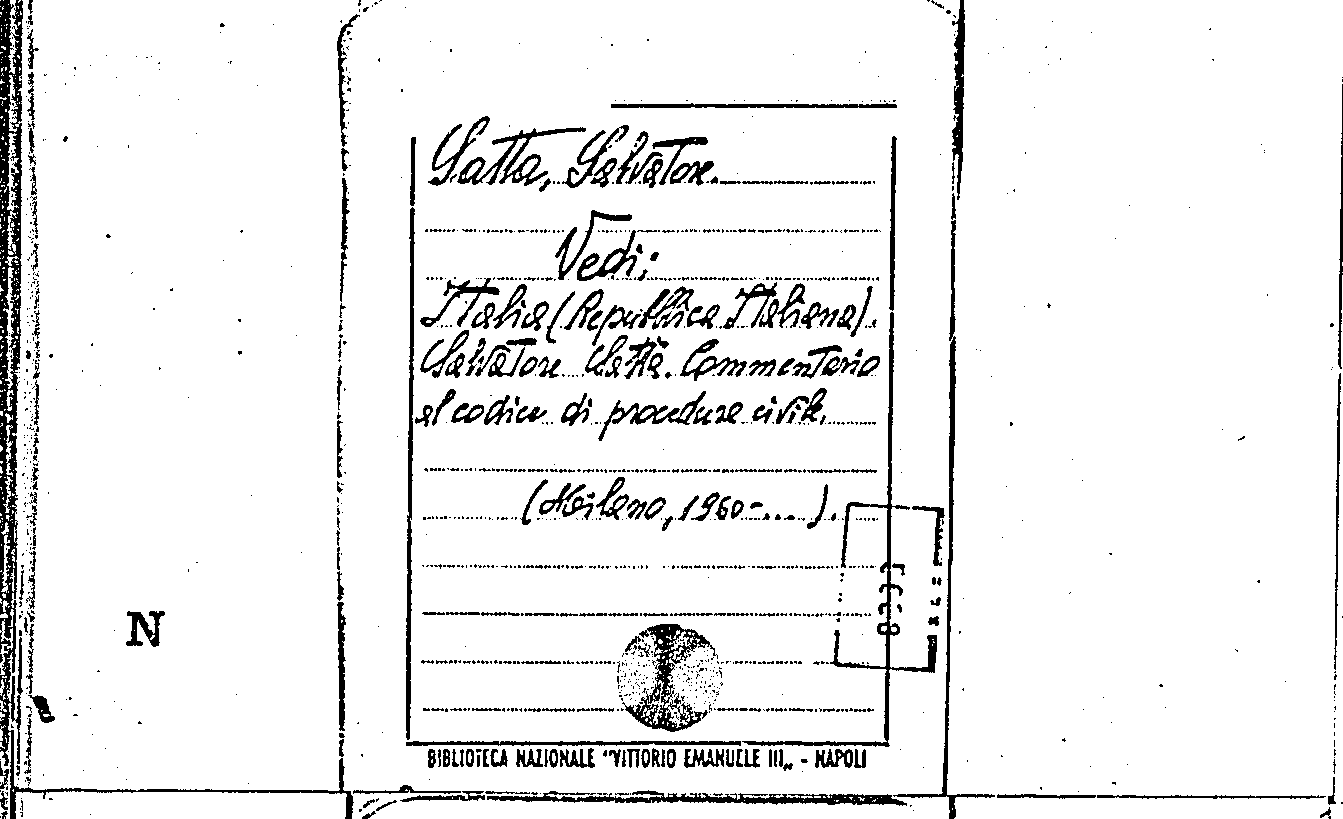 Satta, Salvatore.
Vedi:
Italia (Repubblica Italiana).
Salvatore Satta. Commentario
al codice di procedura civile.
(Milano, 1960-...).
N
BIBLIOTECA NAZIONALE "VITTORIO EMANUELE III„ - NAPOLI